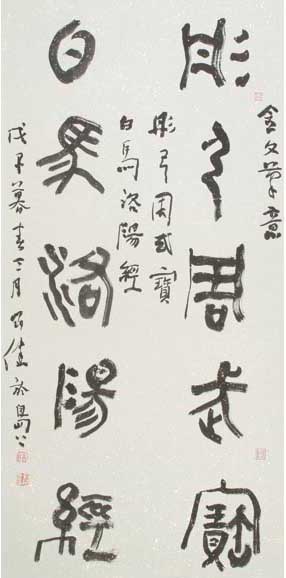 金文筆意
彤弓周武寶
彤弓周武寶
白馬洛陽經
白馬洛陽經
戊子暮春三月